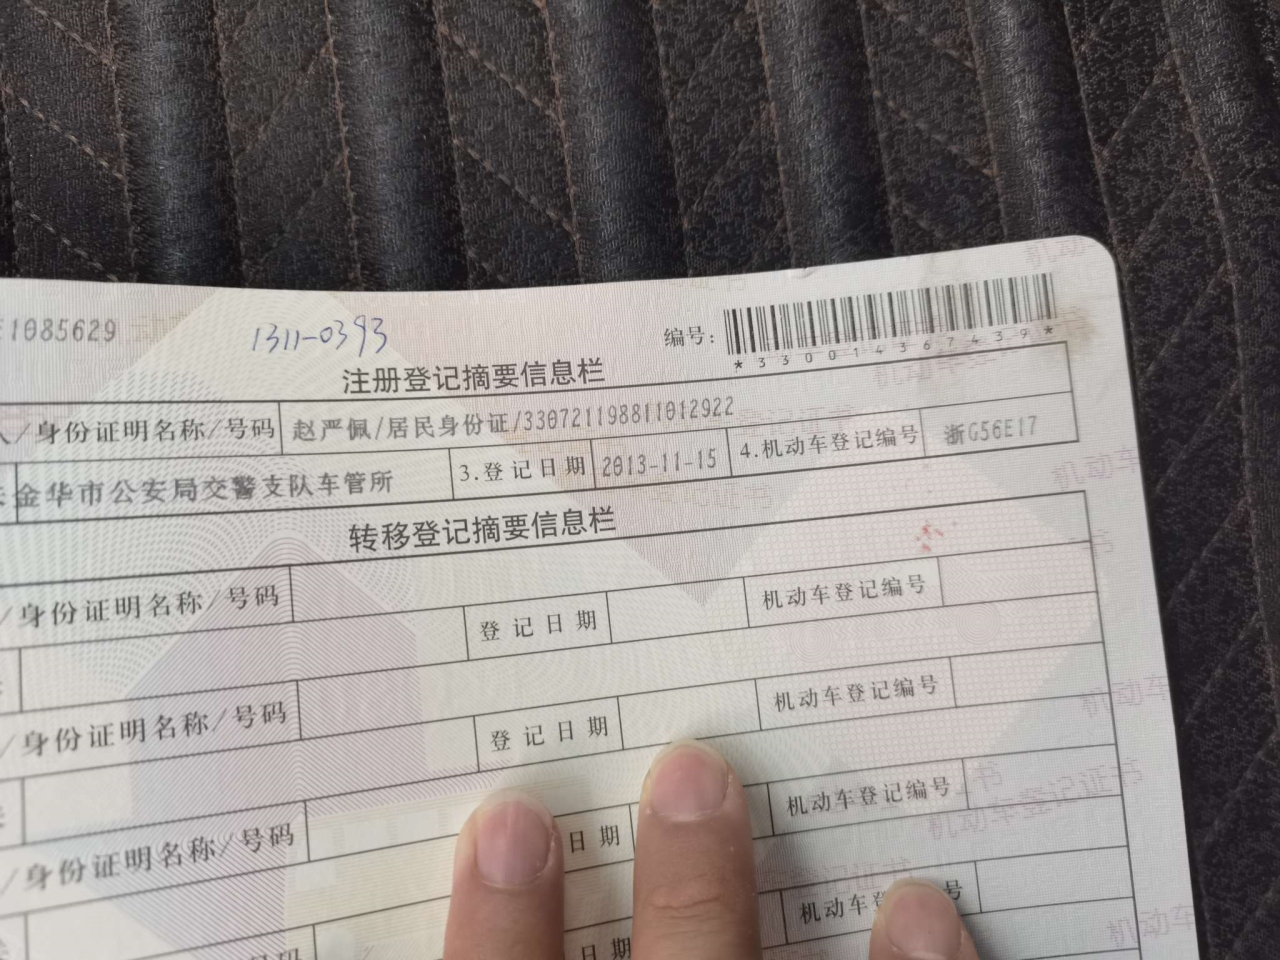 1085629
1311-0393
编号:
*330014367439*
注册登记摘要信息栏
/身份证明名称/号码 赵严佩/居民身份证/330721198811012922
金华市公安局交警支队车管所 3.登记日期 2013-11-15 4.机动车登记编号 浙G56E17
转移登记摘要信息栏
/身份证明名称/号码
登记日期 机动车登记编号
/身份证明名称/号码
登记日期 机动车登记编号
/身份证明名称/号码
日期 机动车登记编号
号码
日期 机动车 号